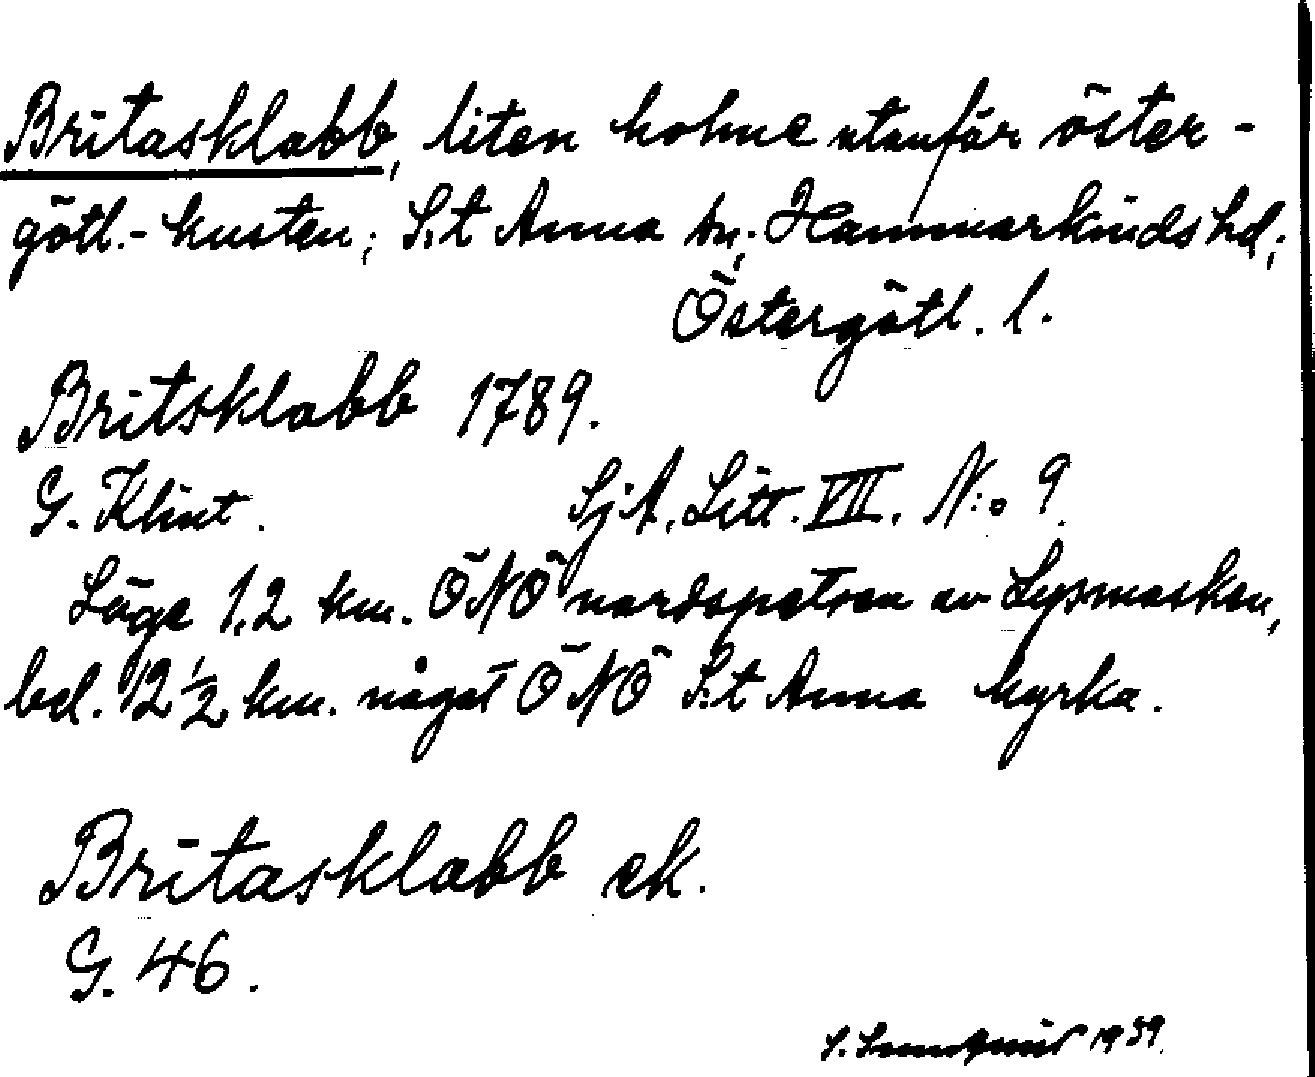 Britasklabb, liten holme utanför öster-
götl.-kusten; S:t Anna sn; Hammarkinds hd;
Östergötl. l.
Britsklabb 1789.
G. Klint. SjA. Litt. VII. N:o 9.
Läge 1,2 km. ÖNÖ nordspetsen av Lysmasken,
bel. 12 1/2 km. något ÖNÖ S:t Anna kyrka.
Britasklabb ek.
G. 46.
S. 1939.